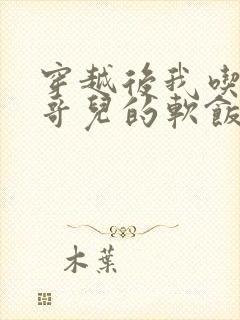 穿越後我喫
哥兒的軟飯
木葉